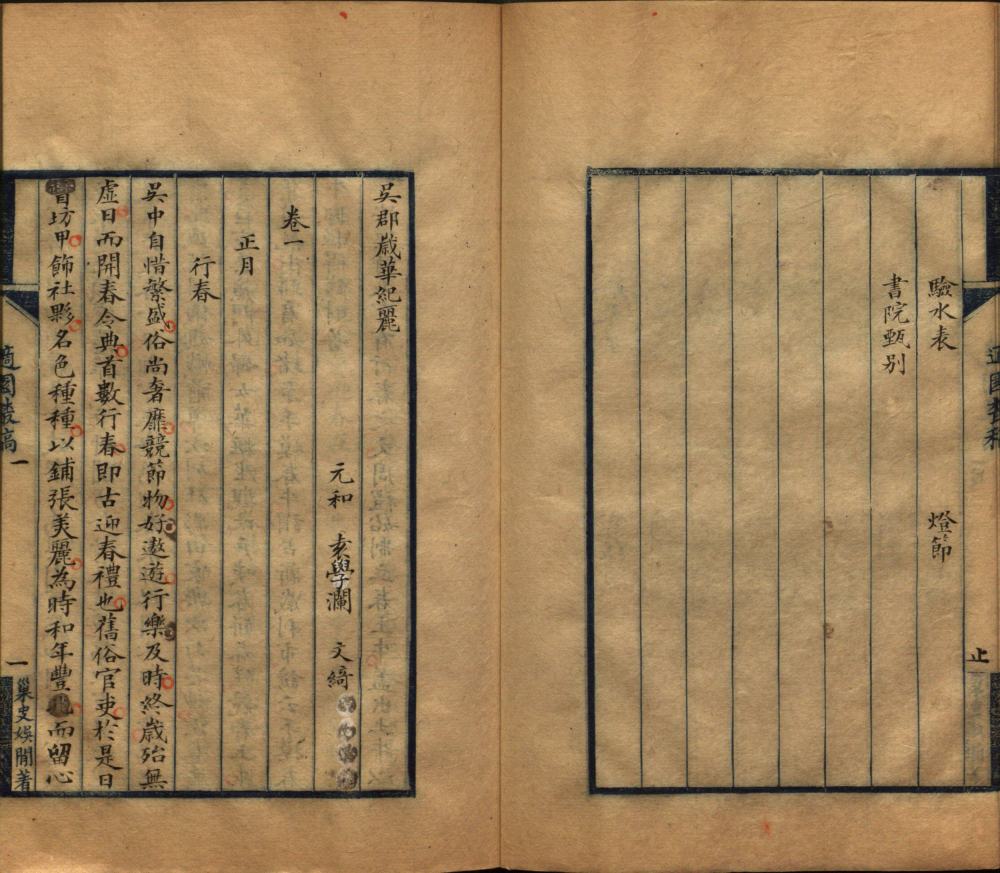 驗水表 燈節
書院甄别
止
吳郡歲華紀麗
元和 袁學瀾 文綺
卷一
正月
行春
吳中自惜繁盛俗尚奢靡競節物好遨遊行樂及時終歲殆無
虛日而開春令典首數行春即古迎春禮也舊俗官吏於是日
督坊甲飾社夥名色種種以鋪張美麗為時和年豐而留心
適園叢稿 一
一
巢史娛閒著